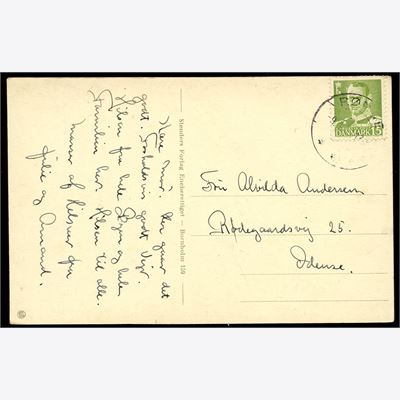 Kære Mor. Her gaar det
godt. Forholdsvis godt Vejr.
Hilsen fra hele Byen og hele
Familien her. Hilsen til alle.
masser af Hilsner fra
Julie og Amand.
Stenders Forlag Eneberettiget – Bornholm 159
RØN
DANMARK 15
Fru Alvilda Andersen
Rødegaardsvej 25.
Odense.